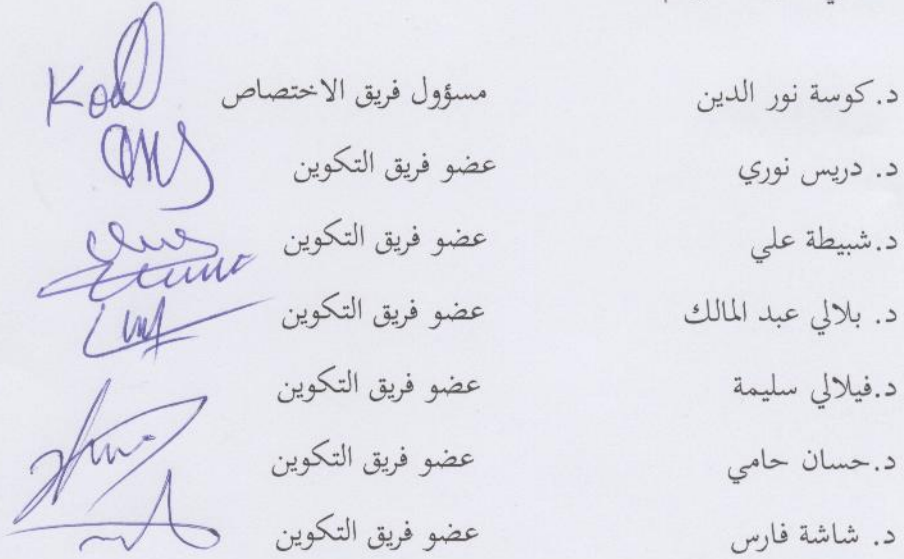 د. كوسة نور الدين مسؤول فريق الاختصاص
د. دريس نوري عضو فريق التكوين
د. شبيطة علي عضو فريق التكوين
د. بلالي عبد المالك عضو فريق التكوين
د. فيلالي سليمة عضو فريق التكوين
د. حسان حامي عضو فريق التكوين
د. شاشة فارس عضو فريق التكوين